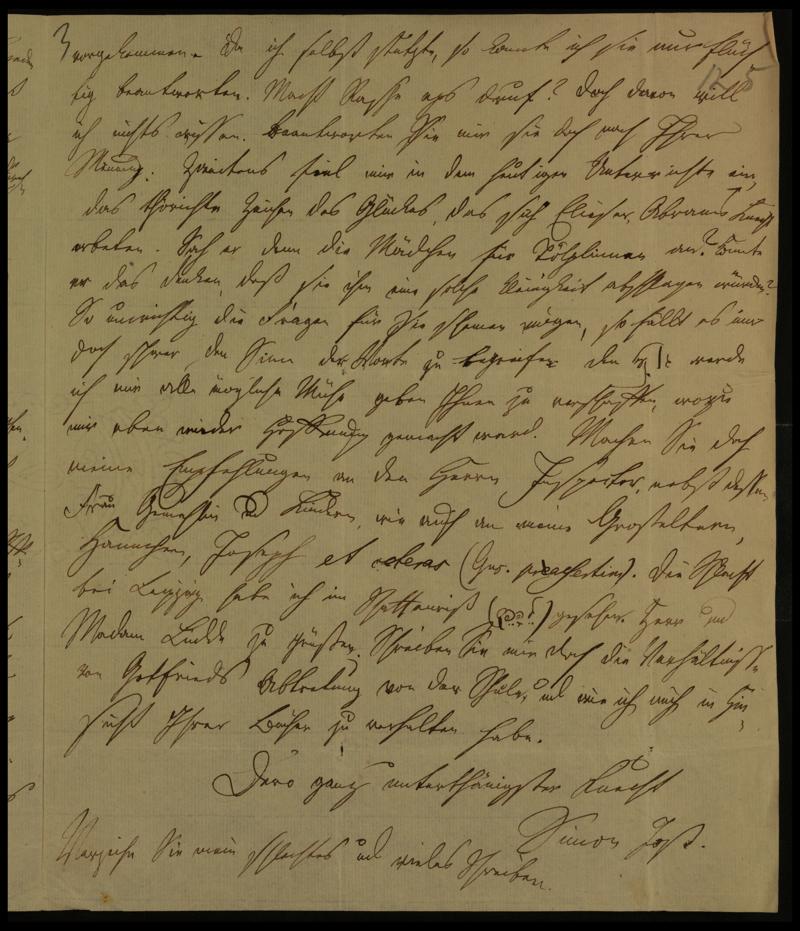 vorgekommen. Da ich selbst stutzte, so konnte ich sie nur flüch
tig beantworten. Macht Rasche aps druf? Doch davon will
ich nichts wissen. Beantworten Sie mir sie doch nach Ihrer
Meinung. Zweitens fiel mir in dem heutigen Unterrichte ein,
das thörichte Zeichen des Glückes, das sich Elieser, Abrams Knecht
erbeten. Sah er denn die Mädchen für Tölplinnen an? Konnte
er das denken, daß sie ihm eine solche Kleinigkeit abschlagen würden?
So unwichtig die Fragen für Sie scheinen mögen, so fällt es mir
doch schwer, den Sinn der Worte zu begreifen. Den werde
ich mir alle mögliche Mühe geben Ihnen zu verschaffen, wozu
mir eben wieder Hoffnung gemacht ward. Machen Sie doch
meine Empfehlungen an den Herrn Inspector, nebst dessen
Frau Gemahlin und Kindern, wie auch an meine Großeltern,
Hannchen, Joseph et ceteras (Gus. Die Schlacht
bei Leipzig habe ich im Schattenriß gesehen. Herr und
Madam Lindde zu grüßen. Schreiben Sie mir doch die Verhältnisse
von Gotfrieds Abtretung von der Schule, und wie ich mich in Hin
sicht Ihrer Bücher zu verhalten habe.
Dero ganz unterthänigster Knecht
Simon Jost.
Verzeihn Sie mein schlechtes und vieles Schreiben.